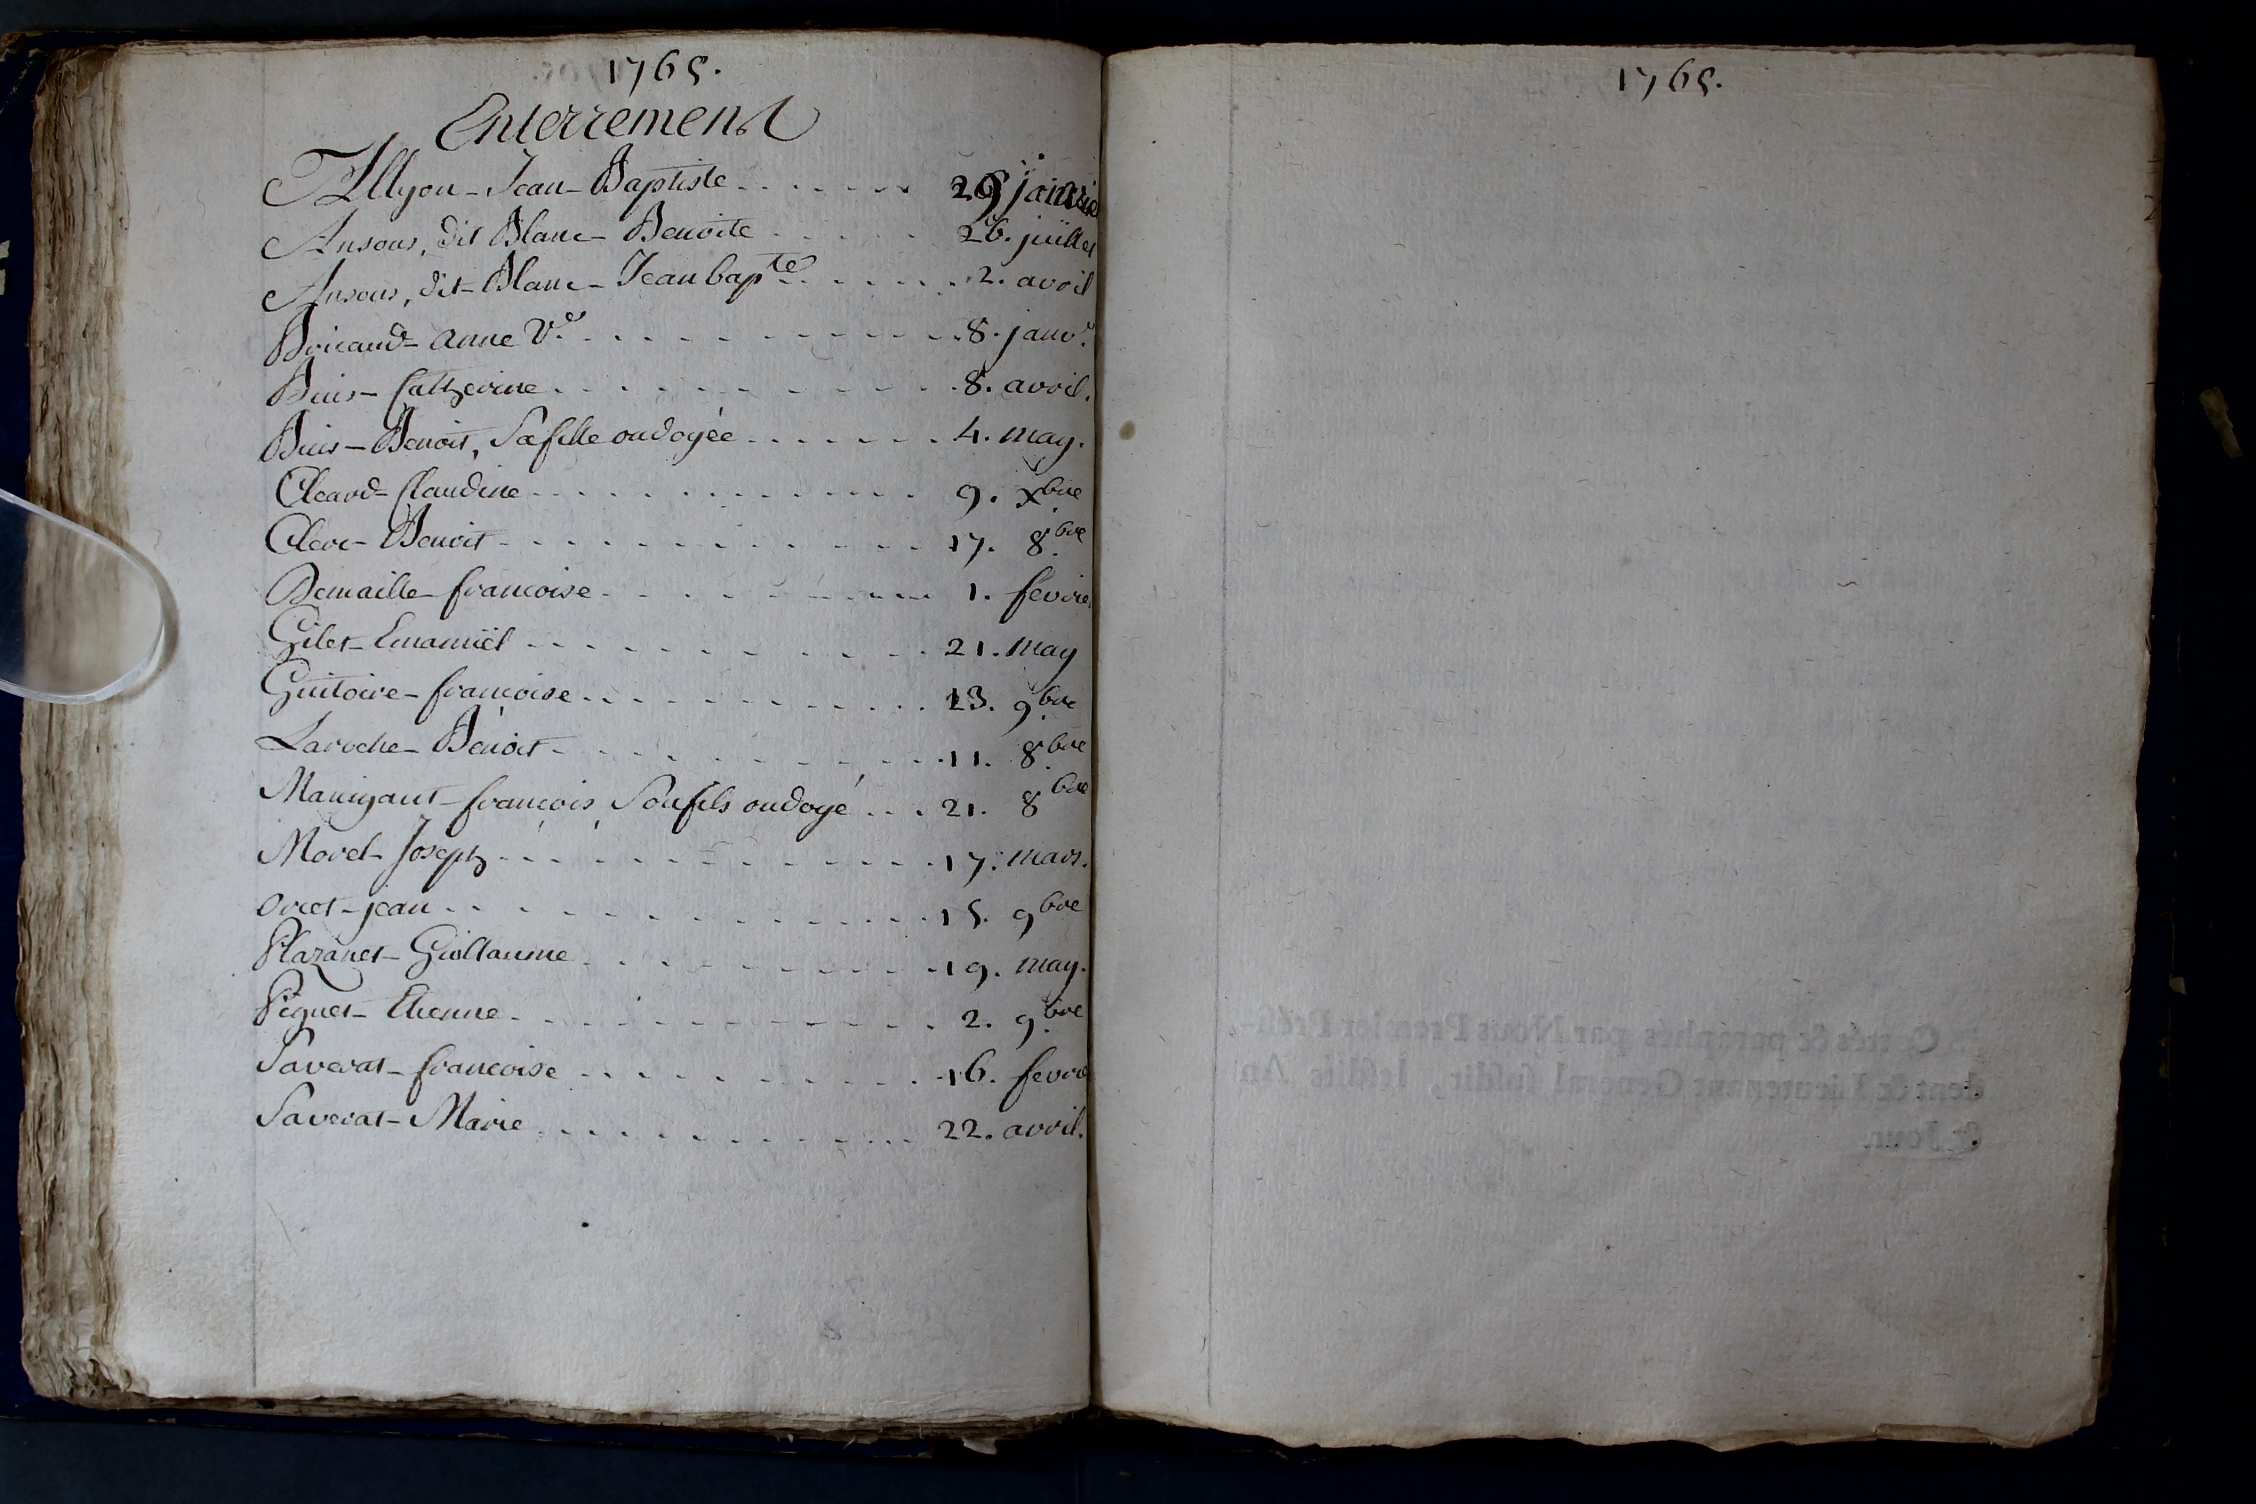 1765.
Enterrement
Allyon - Jean - Baptiste . . . . . . 29 janvier
Ansous, dit Blanc - Benoite . . . . . . 26. juillet
Ansous, dit - Blanc - Jean bapte . . . . . . 2. avril
Bricaud - anne Ve . . . . . . 8. janvr.
Buis - Catherine . . . . . . 8. avril.
Buis - Benoit, Sa fille ondoyée . . . . . . 4. may.
Cleard - Claudine . . . . . . 9. xbre
Clerc - Benoit . . . . . . 17. 8bre
Demaille - francoise . . . . . . 1. fevrier
Gilet - Emanuël . . . . . . 21. may
Guitoire - francoise . . . . . . 13. 9bre
Laroche - Benoit . . . . . . 11. 8bre
Manigant - francois, Son fils ondoyé . . . 21. 8bre
Morel - Joseph . . . . . . 17. mars.
orcet - jean . . . . . . 15. 9bre
Plazanet - Guillaume . . . . . . 19. may.
Piquet - Etienne . . . . . . 2. 9bre
Saverat - francoise . . . . . . 16. fevrie
Saverat - Marie . . . . . . 22. avril.
1765.